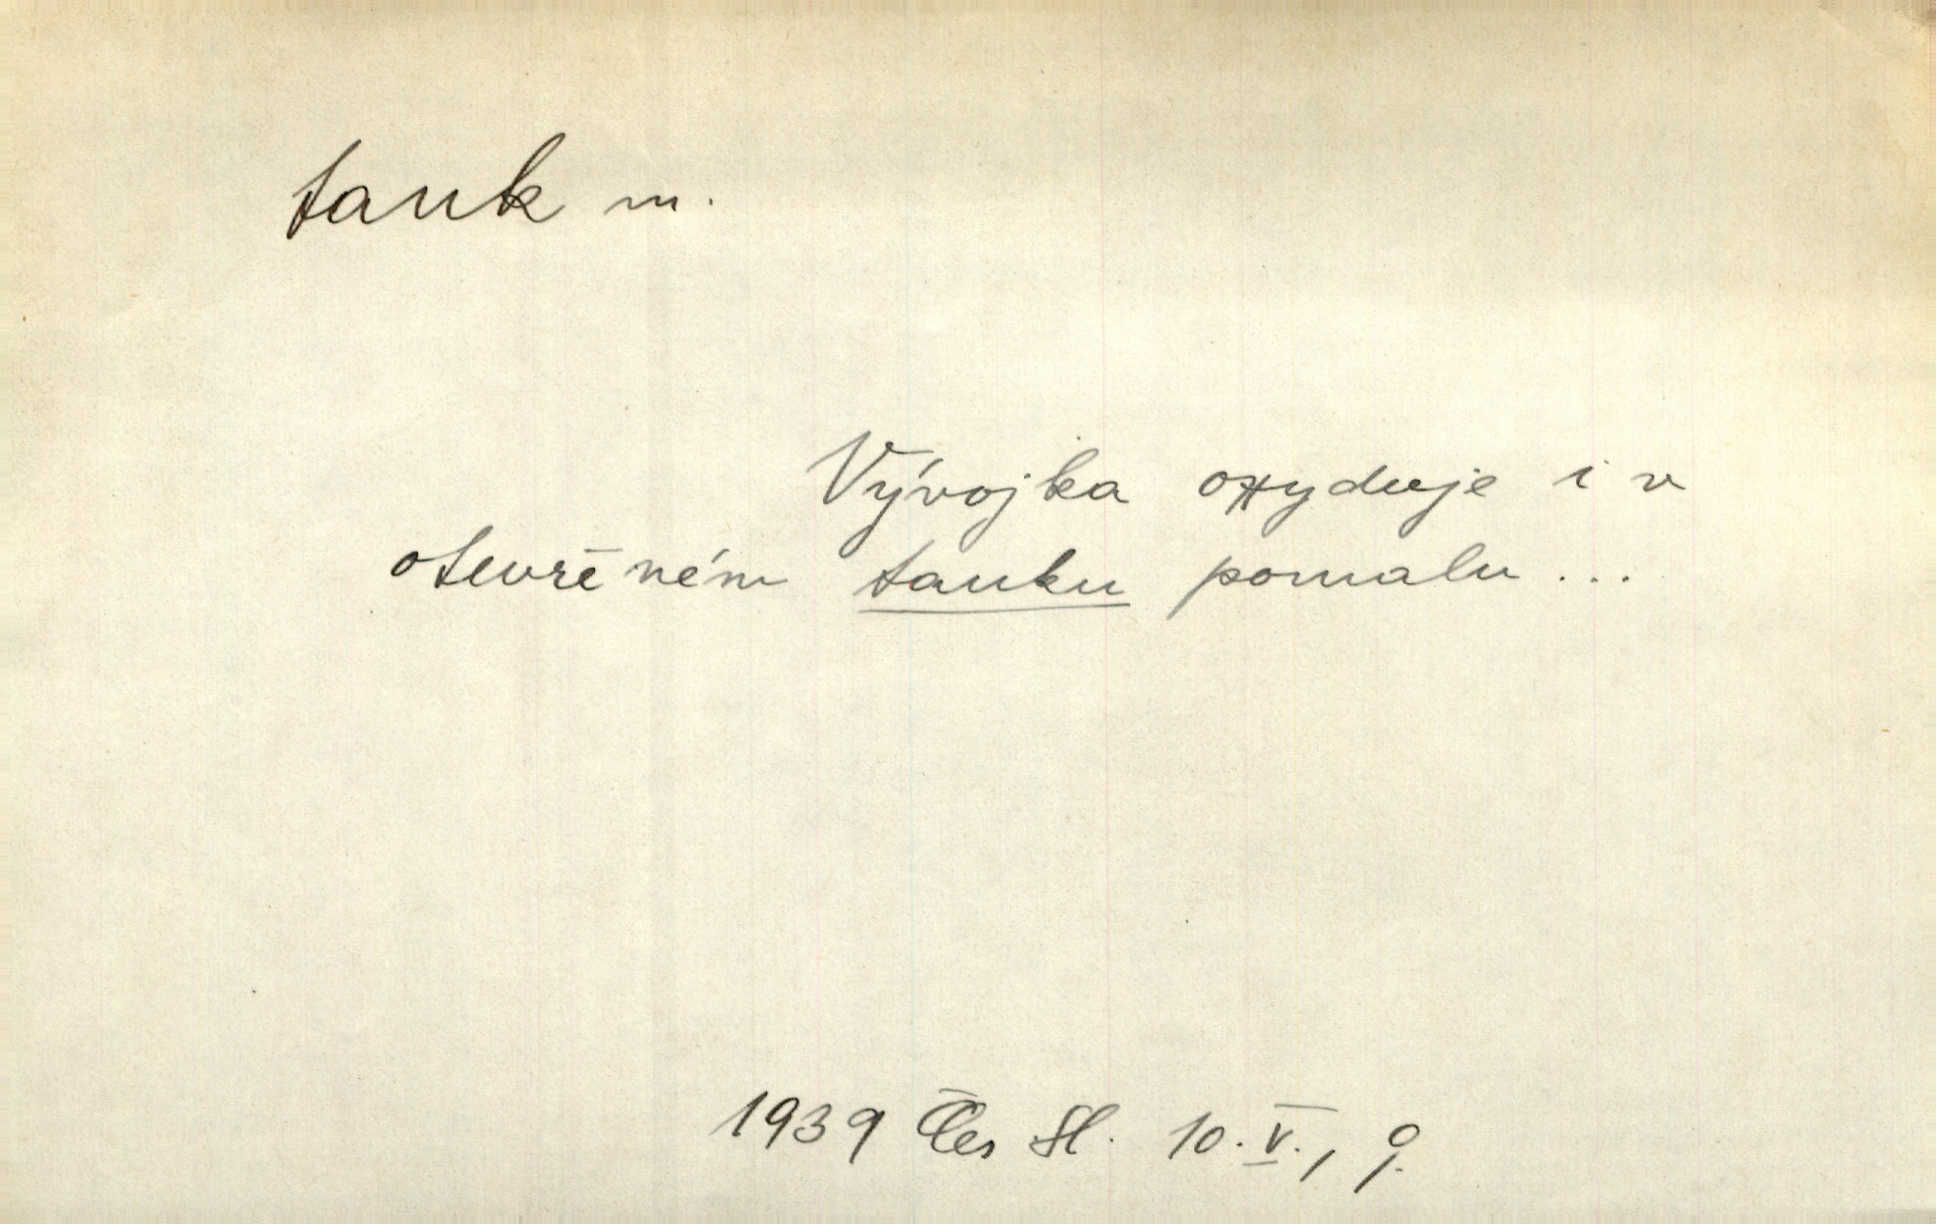 tank m.
Vývojka oxyduje i v
otevřeném tanku pomalu...
1939 Čes sl. 10. V., 9.